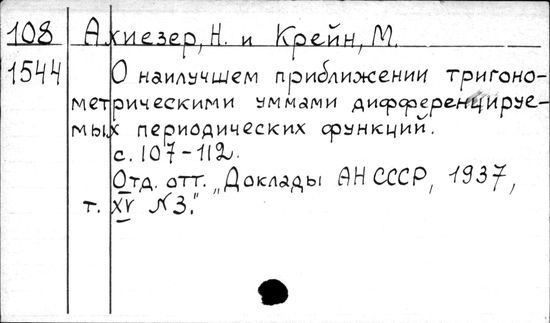 108 Ахиезер, Н. и Крейн, М.
1544 О наилучшем приближении тригоно-
метрическими уммами дифференцируе-
мых периодических функций.
с. 107-112.
Отд. отт. „Доклады АН СССР, 1937,
т. XV №3."